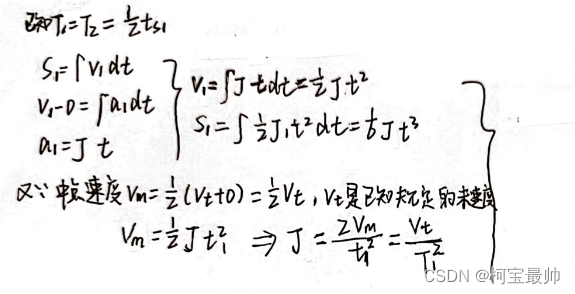 已知T₁=T₂=½ts₁
S₁=∫v₁dt
v₁-0=∫a₁dt
a₁=J t
v₁=∫J tdt=½J t²
S₁=∫½J₁t²dt=⅙J t³
又∵ 中点速度Vm=½(Vt+0)=½Vt，Vt是已知规定的末速度
Vm=½J t₁² ⇒ J=2Vm/t₁²=Vt/T₁²
CSDN @柯宝最帅